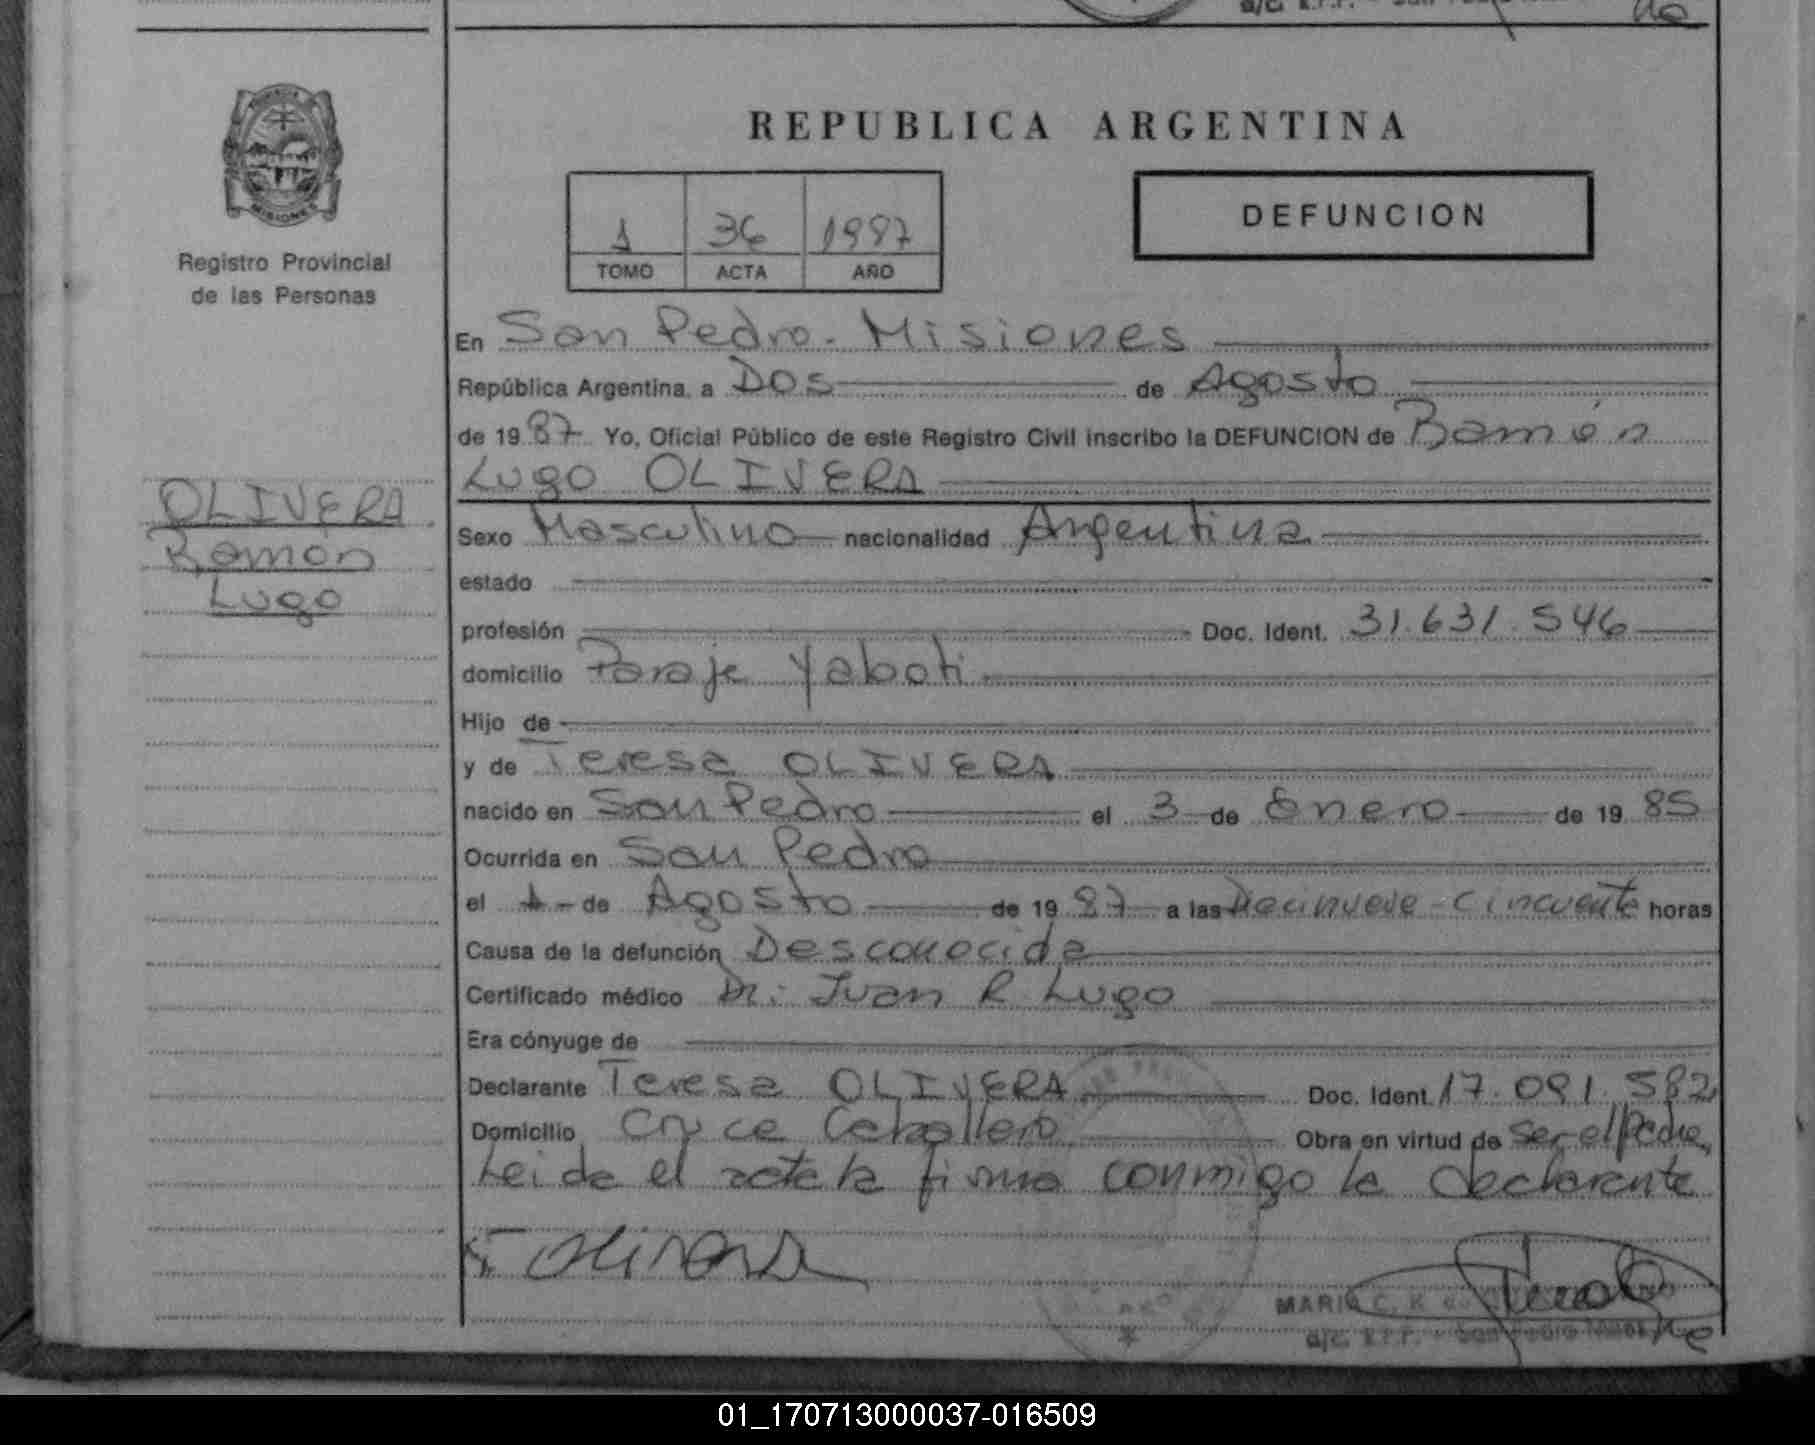 REPUBLICA ARGENTINA
PROVINCIA DE
MISIONES
Registro Provincial
de las Personas
1 36 1987
TOMO ACTA AÑO
DEFUNCION
En San Pedro - Misiones
República Argentina, a Dos de Agosto
de 19 87 Yo, Oficial Público de este Registro Civil inscribo la DEFUNCION de Ramón
Lugo OLIVERA
OLIVERA
Ramón
Lugo
Sexo Masculino nacionalidad Argentina
estado
profesión Doc. Ident. 31.631.546
domicilio Paraje Yaboti
Hijo de
y de Teresa OLIVERA
nacido en San Pedro el 3 de Enero de 19 85
Ocurrida en San Pedro
el 1 de Agosto de 19 87 a las Diecinueve - cincuenta horas
Causa de la defunción Desconocida
Certificado médico Dr. Juan R Lugo
Era cónyuge de
Declarante Teresa OLIVERA Doc. Ident. 17.091.582
Domicilio Cruce Caballero Obra en virtud de ser el Padre,
Leida el acta la firma conmigo la declarante
T Olivera
MARIA C. R. de
a/c. R.P.P. - San Pedro Mnes.
01_170713000037-016509